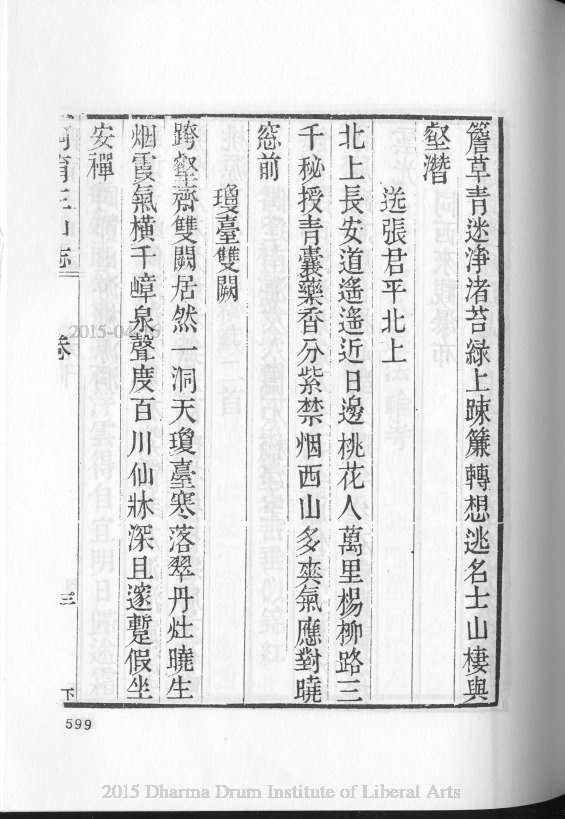 簷草青迷淨渚苔綠上疎簾轉想逃名士山棲與
壑潛
送張君平北上
北上長安道遙遙近日邊桃花人萬里楊柳路三
千秘授青囊藥香分紫禁烟西山多爽氣應對曉
窓前
瓊臺雙闕
跨壑齋雙闕居然一洞天瓊臺寒落翠丹灶曉生
烟霞氣橫千嶂泉聲度百川仙牀深且邃蹔假坐
安禪
育王山志 卷 三 下
599
2015 Dharma Drum Institute of Liberal Arts